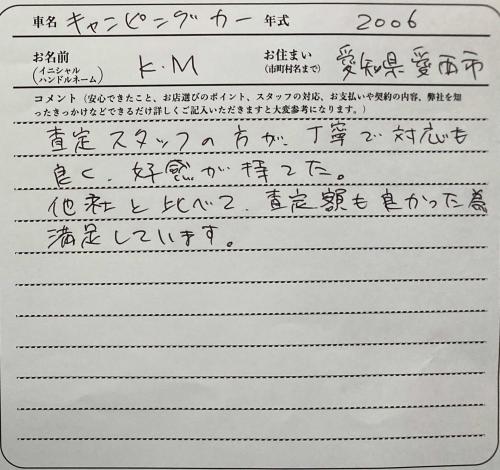 車名 キャンピングカー 年式 2006
お名前
(イニシャル
ハンドルネーム)
K.M
お住まい
(市町村名まで)
愛知県愛西市
コメント(安心できたこと、お店選びのポイント、スタッフの対応、お支払いや契約の内容、弊社を知
ったきっかけなどできるだけ詳しくご記入いただきますと大変参考になります。)
査定スタッフの方が、丁寧で対応も
良く、好感が持てた。
他社と比べて、査定額も良かった為
満足しています。